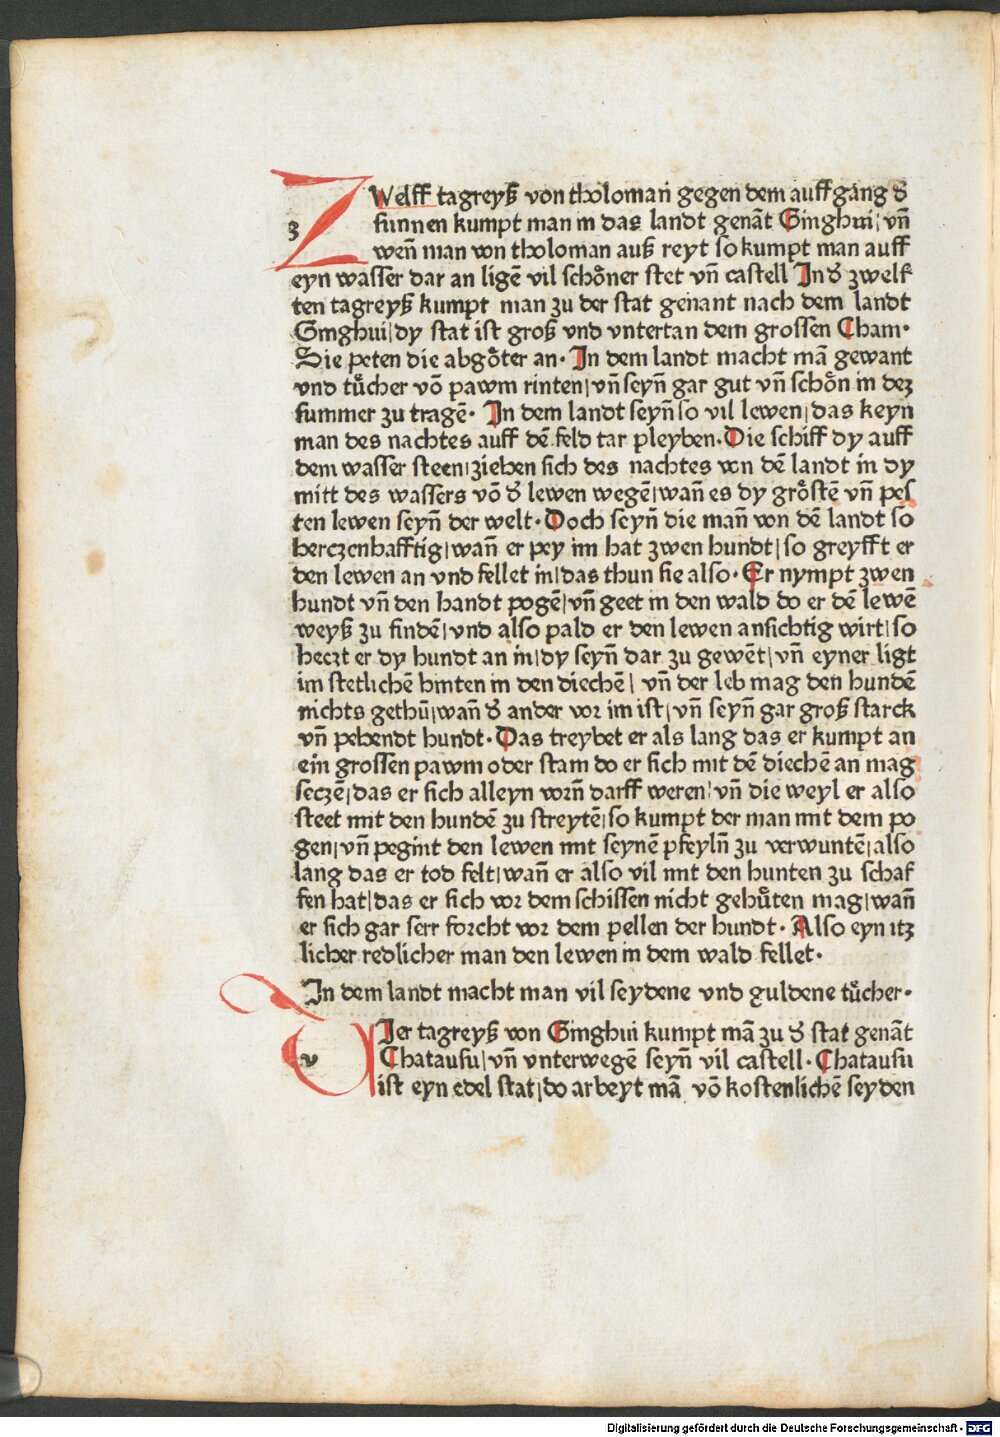 ZWelff tagreyß von tholoman gegen dem auffgang d̕
sunnen kumpt man in das landt genāt Ginghui/ vn̄
wen̄ man von tholoman auß reyt so kumpt man auff
eyn wasser dar an ligē vil schöner stet vn̄ castell In d̕ zwelf
ten tagreyß kumpt man zu der stat genant nach dem landt
Ginghui/dy stat ist groß vnd vntertan dem grossen Cham·
Sie peten die abgöter an· In dem landt macht mā gewant
vnd tücher vō pawm rinten/vn̄ seyn̄ gar gut vn̄ schön in dez
summer zu tragē· In dem landt seyn̄ so vil lewen/das keyn
man des nachtes auff dē feld tar pleyben·Die schiff dy auff
dem wasser steen/ziehen sich des nachtes von dē landt in dy
mitt des wassers vō d̕ lewen wegē/wan̄ es dy gröstē vn̄ pes
ten lewen seyn̄ der welt·Doch seyn̄ die man̄ von dē landt so
herczenhafftig/wan̄ er pey im hat zwen hundt/so greyfft er
den lewen an vnd fellet in/das thun sie also·Er nympt zwen
hundt vn̄ den handt pogē/vn̄ geet in den wald do er dē lewē
weyß zu findē/vnd also pald er den lewen ansichtig wirt/so
heczt er dy hundt an in/dy seyn̄ dar zu gewēt/vn̄ eyner ligt
im stetlichē hinten in den diechē/ vn̄ der leb mag den hundē
nichts gethū/wan̄ d̕ ander vor im ist/vn̄ seyn̄ gar groß starck
vn̄ pehendt hundt·Das treybet er als lang das er kumpt an
ein grossen pawm oder stam do er sich mit dē diechē an mag
seczē/das er sich alleyn vorn̄ darff weren/ vn̄ die weyl er also
steet mit den hundē zu streytē/so kumpt der man mit dem po
gen/vn̄ pegint den lewen mit seynē pfeyln̄ zu verwuntē/also
lang das er tod felt/wan̄ er also vil mit den hunten zu schaf
fen hat/das er sich vor dem schissen nicht gehüten mag/wan̄
er sich gar serr forcht vor dem pellen der hundt·Also eyn itz
licher redlicher man den lewen in dem wald fellet·
In dem landt macht man vil seydene vnd guldene tücher·
VJer tagreyß von Ginghui kumpt mā zu d̕ stat genāt
Chataufu/vn̄ vnterwegē seyn̄ vil castell·Chataufu
ist eyn edel stat/do arbeyt mā vō kostenlichē seyden
Digitalisierung gefördert durch die Deutsche Forschungsgemeinschaft · DFG